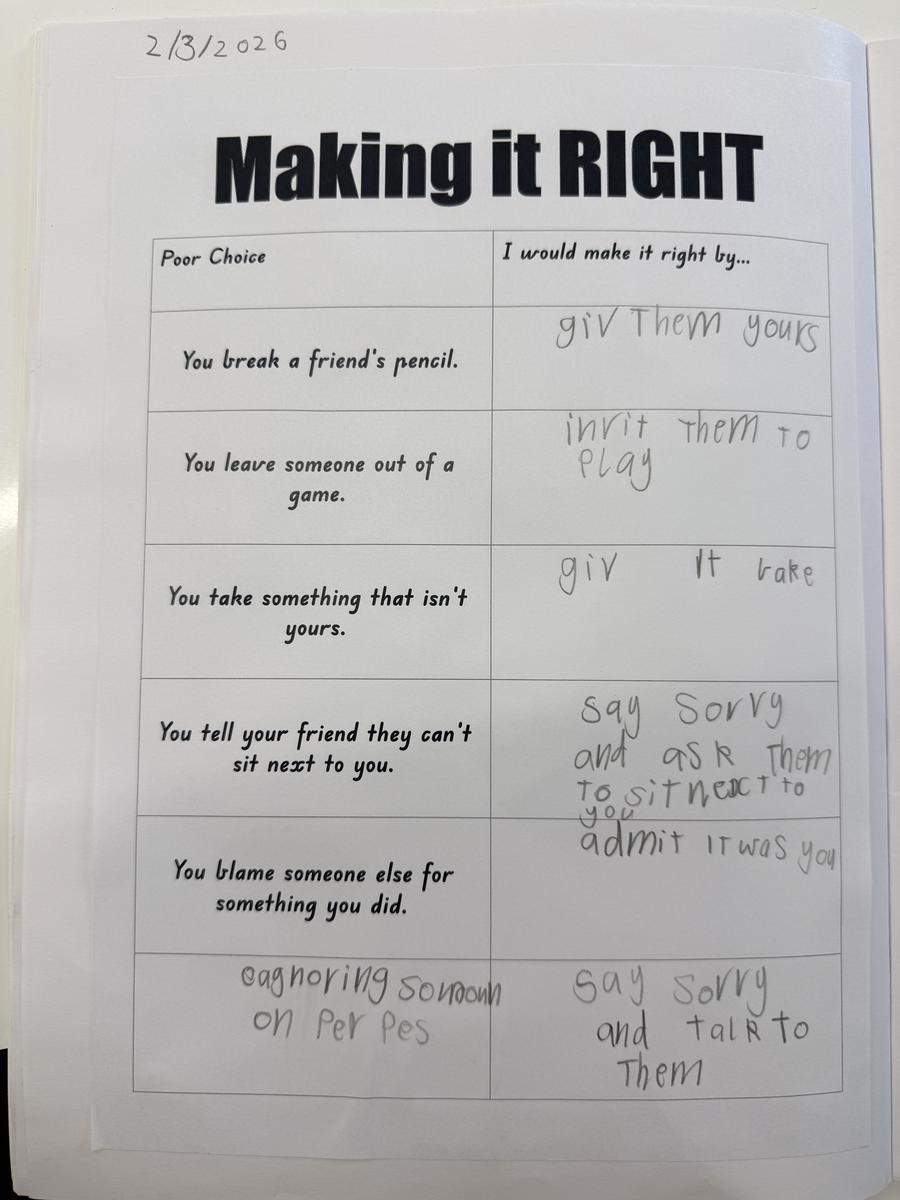 2/3/2026
Making it RIGHT
Poor Choice
I would make it right by...
You break a friend's pencil.
giv Them yours
You leave someone out of a
game.
invit Them To
Play
You take something that isn't
yours.
giv It bake
You tell your friend they can't
sit next to you.
say Sorry
and ask Them
To sit next to
you
You blame someone else for
something you did.
admit IT was you
eagnoring
on Per Pes
say Sorry
and talk to
Them